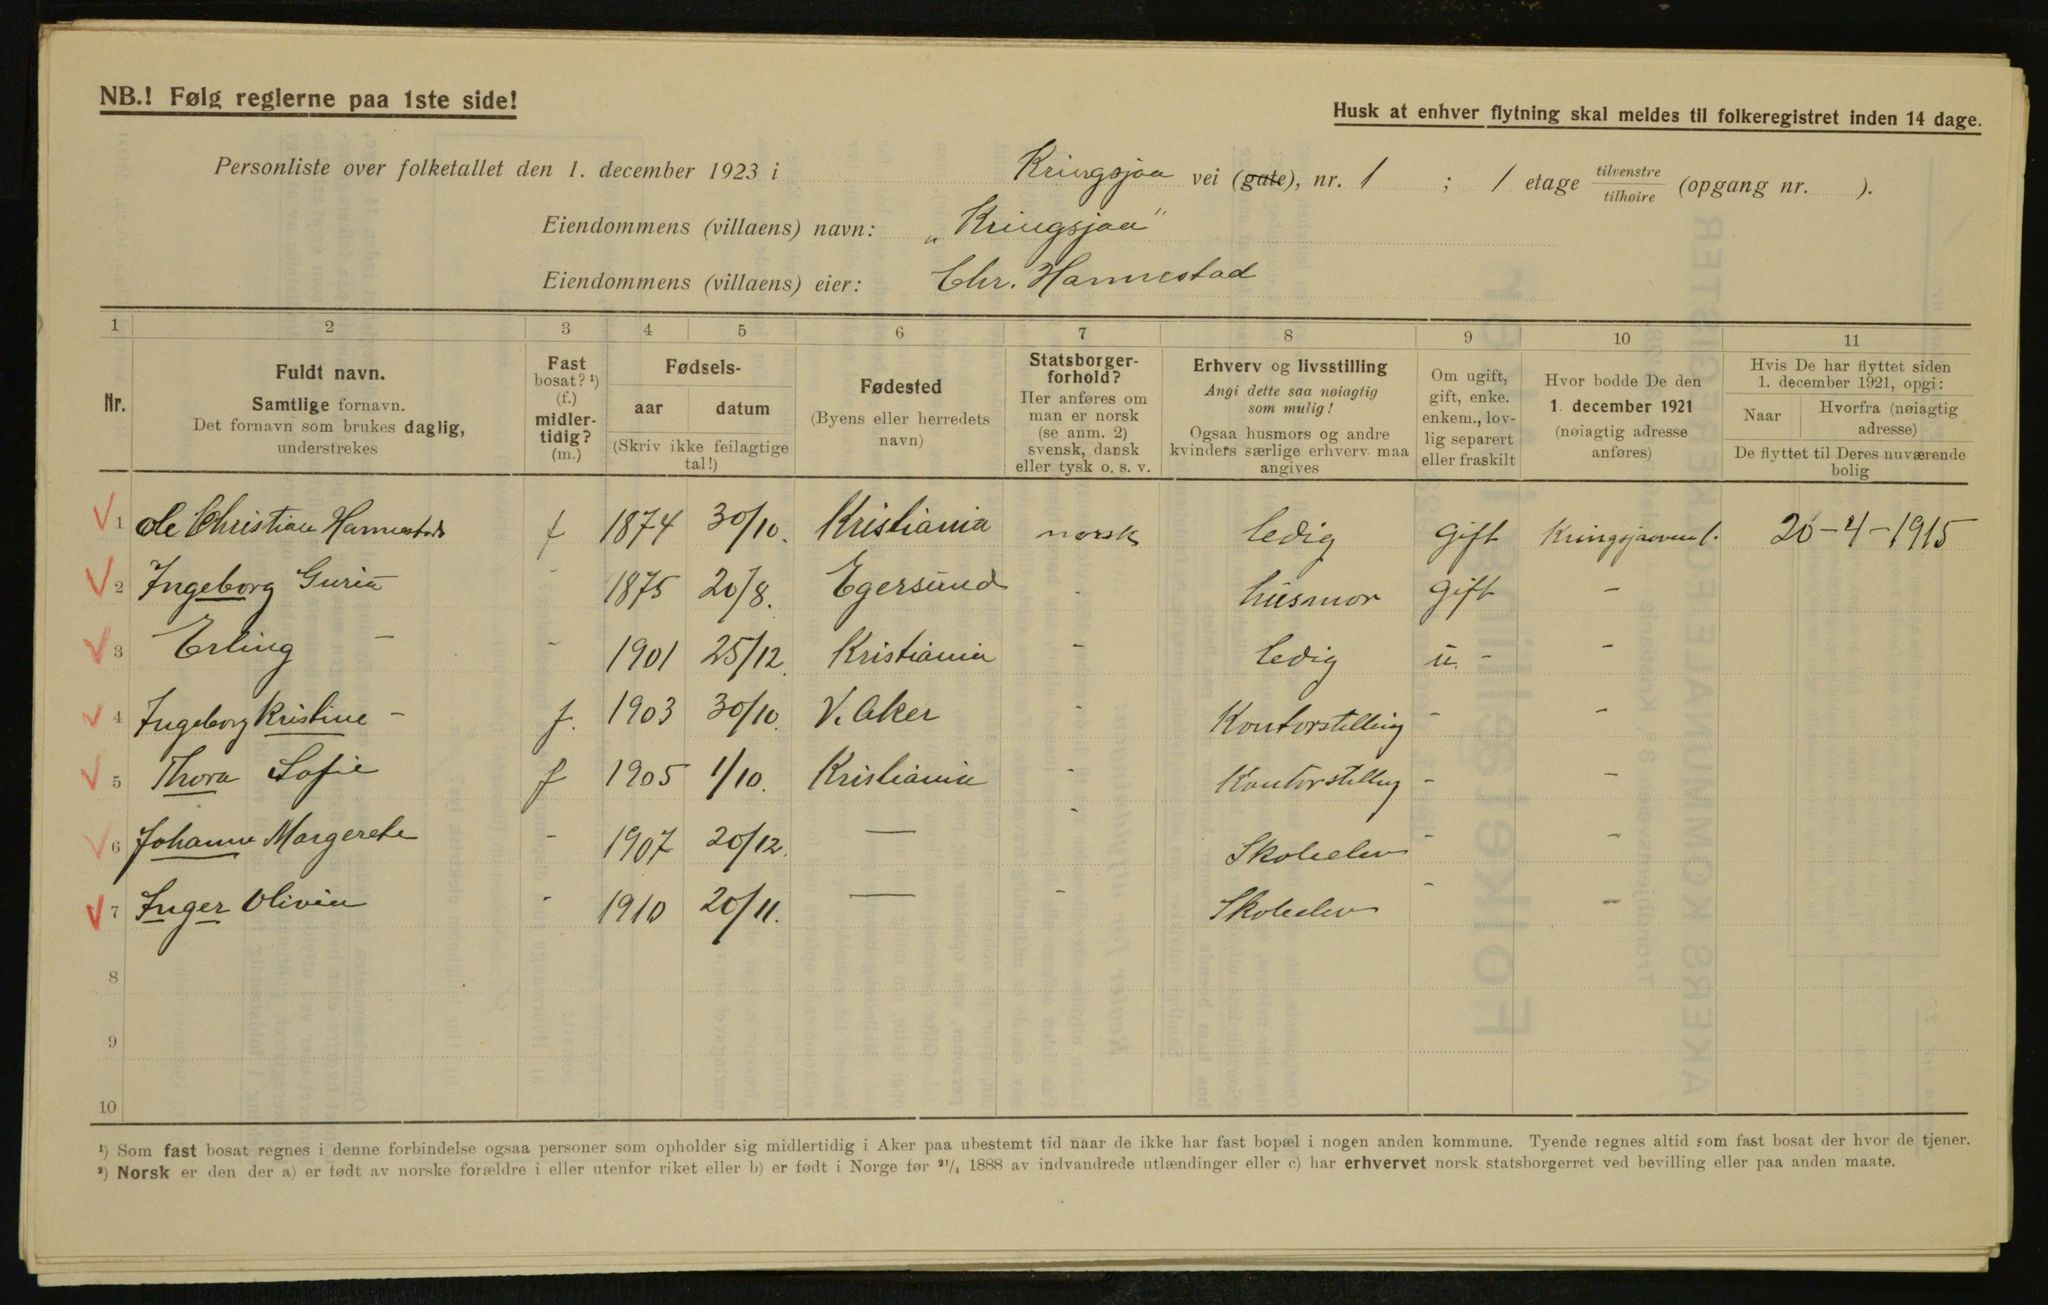 NB.! Følg reglerne paa 1ste side!
Husk at enhver flytning skal meldes til folkeregistret inden 14 dage.
Personliste over folketallet den 1. december 1923 i Kringsjaa vei (gate), nr. 1 ; 1 etage tilvenstre/tilhøire (opgang nr. ).
Eiendommens (villaens) navn: „Kringsjaa"
Eiendommens (villaens) eier: Chr. Hannestad
1 2 3 4 5 6 7 8 9 10 11
Nr.
Fuldt navn.
Samtlige fornavn.
Det fornavn som brukes daglig,
understrekes
Fast
bosat? ¹)
(f.)
midler-
tidig?
(m.)
Fødsels-
aar datum
(Skriv ikke feilagtige
tal!)
Fødested
(Byens eller herredets
navn)
Statsborger-
forhold?
Her anføres om
man er norsk
(se anm. 2)
svensk, dansk
eller tysk o. s. v.
Erhverv og livsstilling
Angi dette saa nøiagtig
som mulig!
Ogsaa husmors og andre
kvinders særlige erhverv maa
angives
Om ugift,
gift, enke.
enkem., lov-
lig separert
eller fraskilt
Hvor bodde De den
1. december 1921
(nøiagtig adresse
anføres)
Hvis De har flyttet siden
1. december 1921, opgi:
Naar Hvorfra (nøiagtig
adresse)
De flyttet til Deres nuværende
bolig
1 Ole Christian Hannestad f 1874 30/10. Kristiania norsk ledig Gift Kringsjaaveien 1. 20-4-1915
2 Ingeborg Guria - 1875 20/8. Egersund - husmor Gift -
3 Erling - - 1901 25/12. Kristiania - ledig u. - -
4 Ingeborg Kristine - f. 1903 30/10. V. Aker - Kontorstilling - -
5 Thora Sofie f 1905 1/10. Kristiania - Kontorstilling - -
6 Johanne Margerete - 1907 20/12. — - Skoleelev - -
7 Inger Olivia - 1910 20/11. — - Skoleelev - -
8
9
10
¹) Som fast bosat regnes i denne forbindelse ogsaa personer som opholder sig midlertidig i Aker paa ubestemt tid naar de ikke har fast bopæl i nogen anden kommune. Tyende regnes altid som fast bosat der hvor de tjener.
²) Norsk er den der a) er født av norske forældre i eller utenfor riket eller b) er født i Norge før ²¹/₄ 1888 av indvandrede utlændinger eller c) har erhvervet norsk statsborgerret ved bevilling eller paa anden maate.